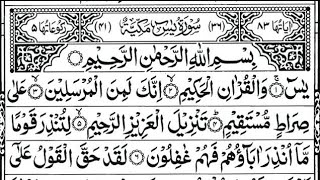 اٰیَاتُهَا ۸۳ (۳۶) سُوْرَةُ یٰسٓ مَكِّیَّةٌ (۴۱) رُكُوْعَاتُهَا ۵
بِسْمِ اللّٰهِ الرَّحْمٰنِ الرَّحِیْمِ
یٰسٓ ۝۱ وَ الْقُرْاٰنِ الْحَكِیْمِ ۝۲ اِنَّكَ لَمِنَ الْمُرْسَلِیْنَ ۝۳ عَلٰى
صِرَاطٍ مُّسْتَقِیْمٍ ۝۴ تَنْزِیْلَ الْعَزِیْزِ الرَّحِیْمِ ۝۵ لِتُنْذِرَ قَوْمًا
مَّاۤ اُنْذِرَ اٰبَآؤُهُمْ فَهُمْ غٰفِلُوْنَ ۝۶ لَقَدْ حَقَّ الْقَوْلُ عَلٰۤى